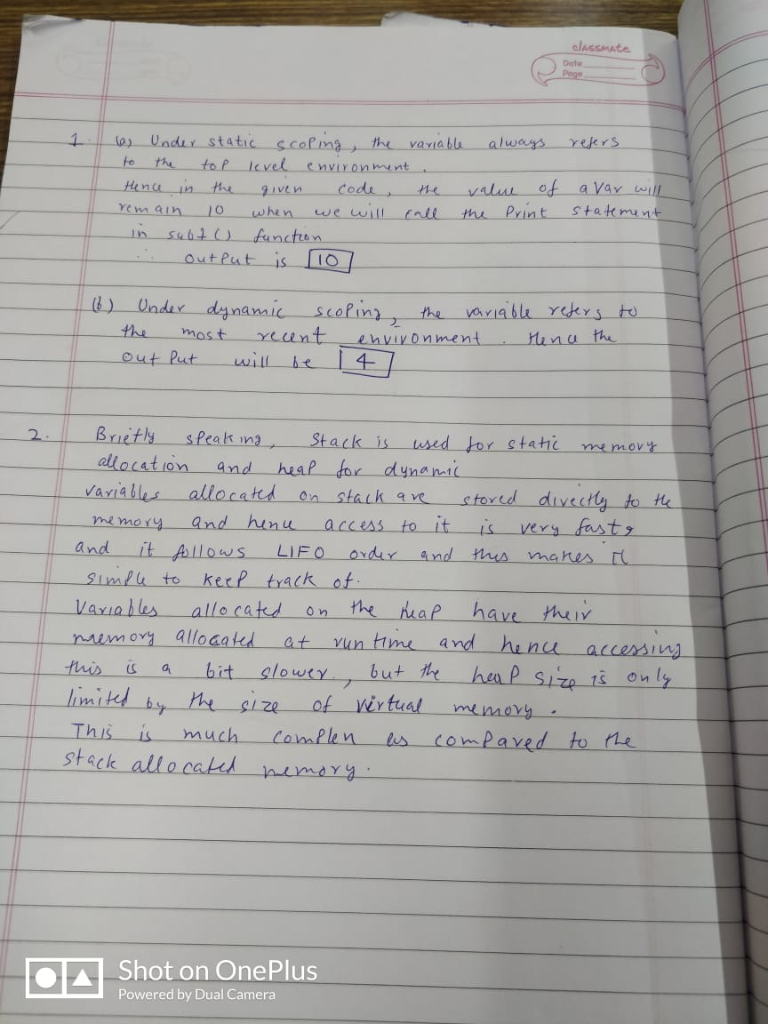 classmate
Date
Page
1. (a) Under static scoping, the variable always refers
to the top level environment.
Hence in the given code, the value of a var will
remain 10 when we will call the Print statement
in sub2() function
∴ output is 10
(b) Under dynamic scoping, the variable refers to
the most recent environment. Hence the
output will be 4
2. Briefly speaking, Stack is used for static memory
allocation and heap for dynamic
variables allocated on stack are stored directly to the
memory and hence access to it is very fast,
and it follows LIFO order and thus makes it
simple to keep track of.
Variables allocated on the heap have their
memory allocated at run time and hence accessing
this is a bit slower, but the heap size is only
limited by the size of virtual memory.
This is much complen as compared to the
stack allocated memory.
Shot on OnePlus
Powered by Dual Camera